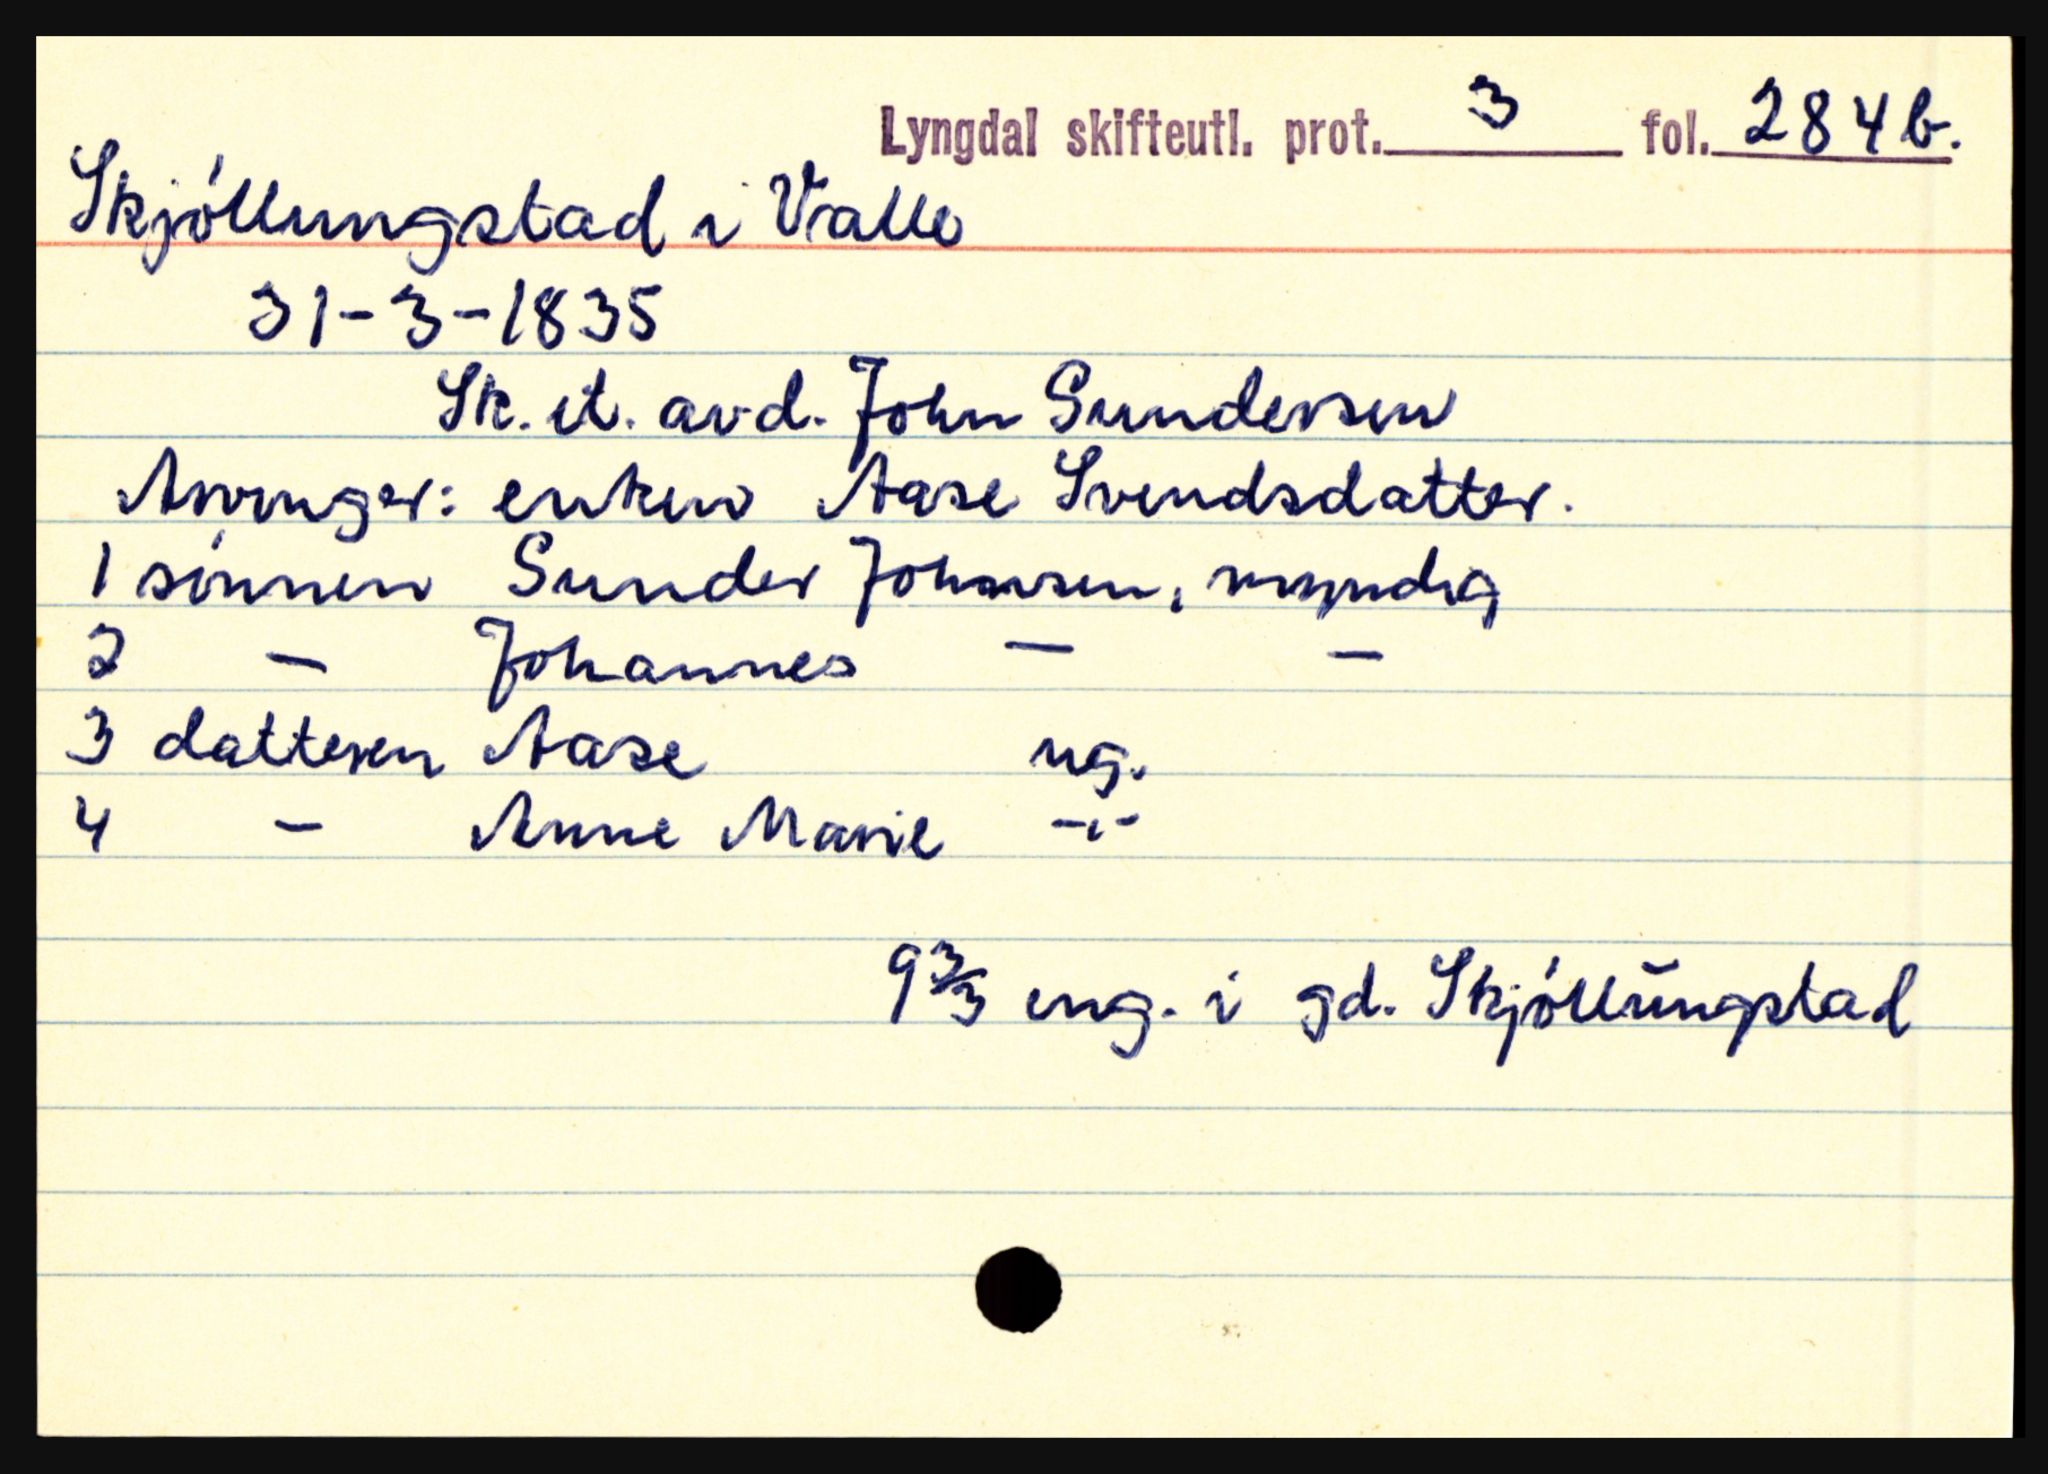 Lyngdal skifteutl. prot. 3 fol. 284 b.
Skjóllungstad i Valle
31-3-1835
Sk. et. avd. John Sundersen
Arvinger: enken Aase Svendsdatter.
1 sónnen Sunder Johnsen, myndig
2 - Johannes - -
3 datteren Aase ug.
4 - Anne Marie -"-
9 3/3 eng. i gd. Skjóllŭngstad